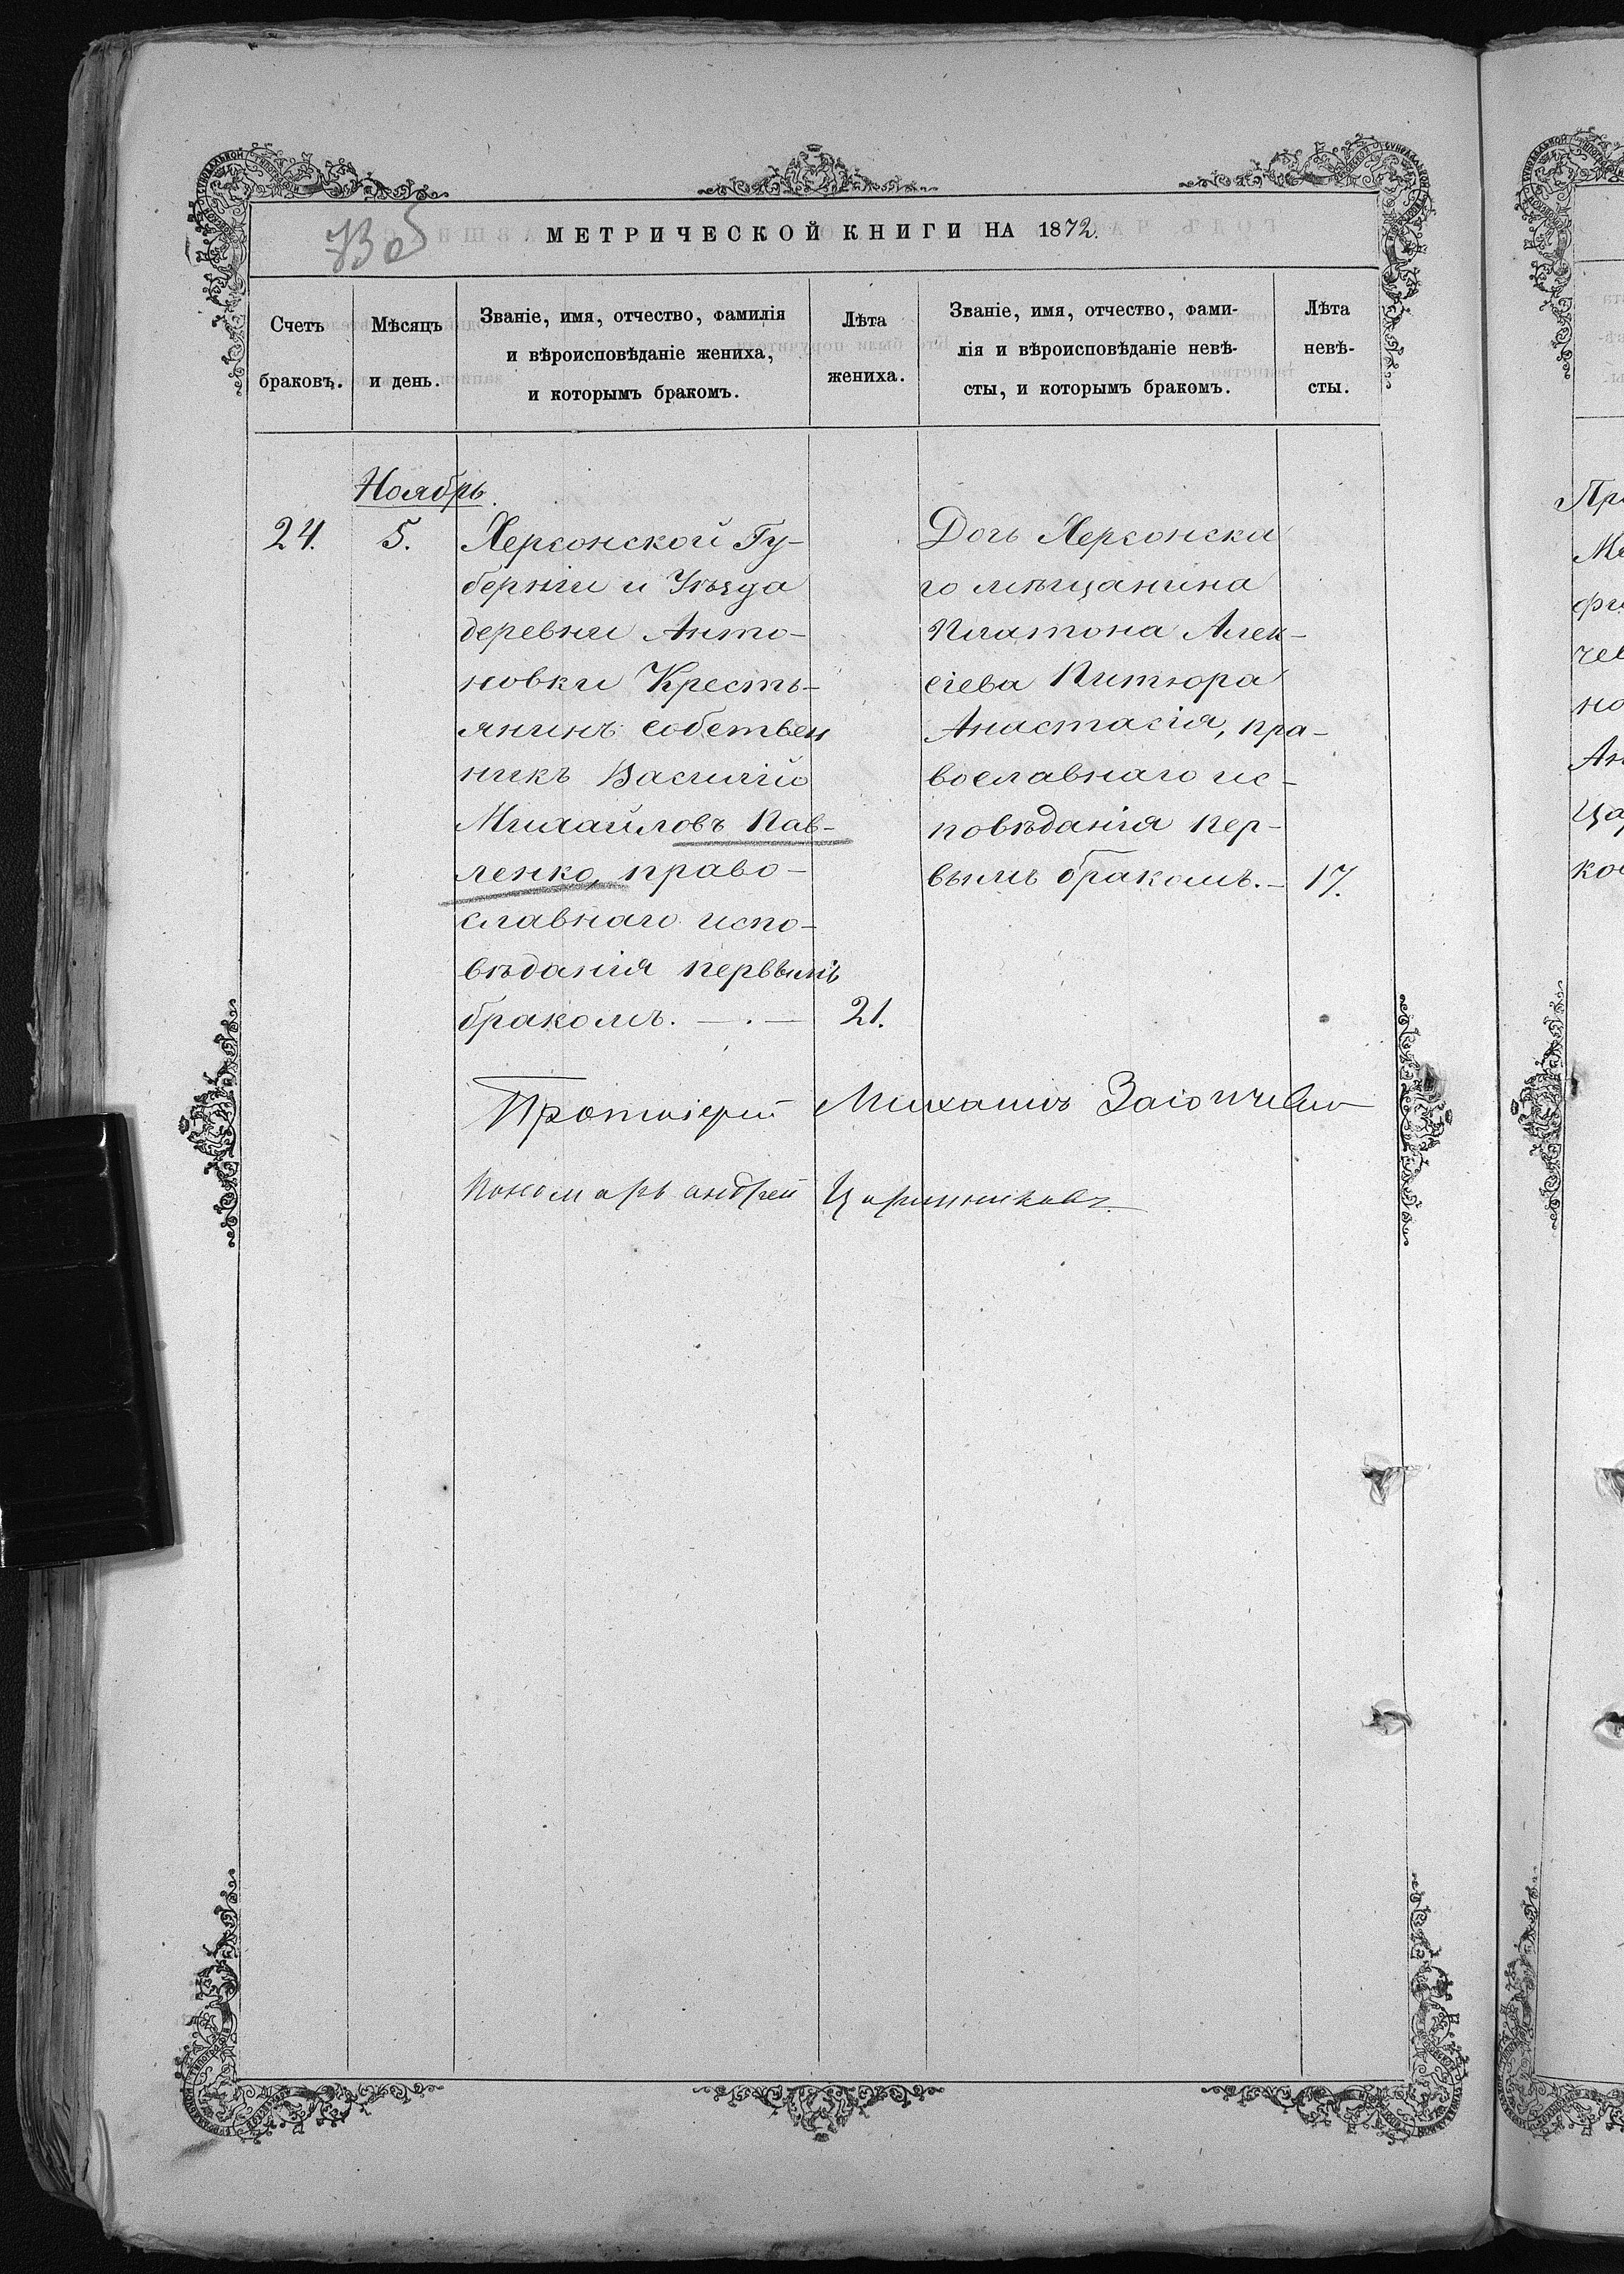 МЕТРИЧЕСКОЙ КНИГИ НА 1872.
Счетъ браковъ.
Мѣсяцъ и день.
Званіе, имя, отчество, фамилія
и вѣроисповѣданіе жениха,
и которымъ бракомъ.
Лѣта жениха.
Званіе, имя, отчество, фами-
лія и вѣроисповѣданіе невѣ-
сты, и которымъ бракомъ.
Лѣта невѣ-
сты.
Ноябрь.
24.
5.
Херсонской Гу-
берніи и Уѣзда
деревни Анто-
новки Кресть-
янинъ собствен
никъ Василій
Михайловъ Пав-
ленко, право-
славнаго испо-
вѣданія первымъ
бракомъ. —.—
21.
Дочь Херсонска
го мѣщанина
Платона Алек-
сіева Питюра
Анастасія, пра-
вославнаго ис-
повѣданія пер-
вымъ бракомъ. —
17.
Протоіерей Михаилъ
Пономарь Андрей